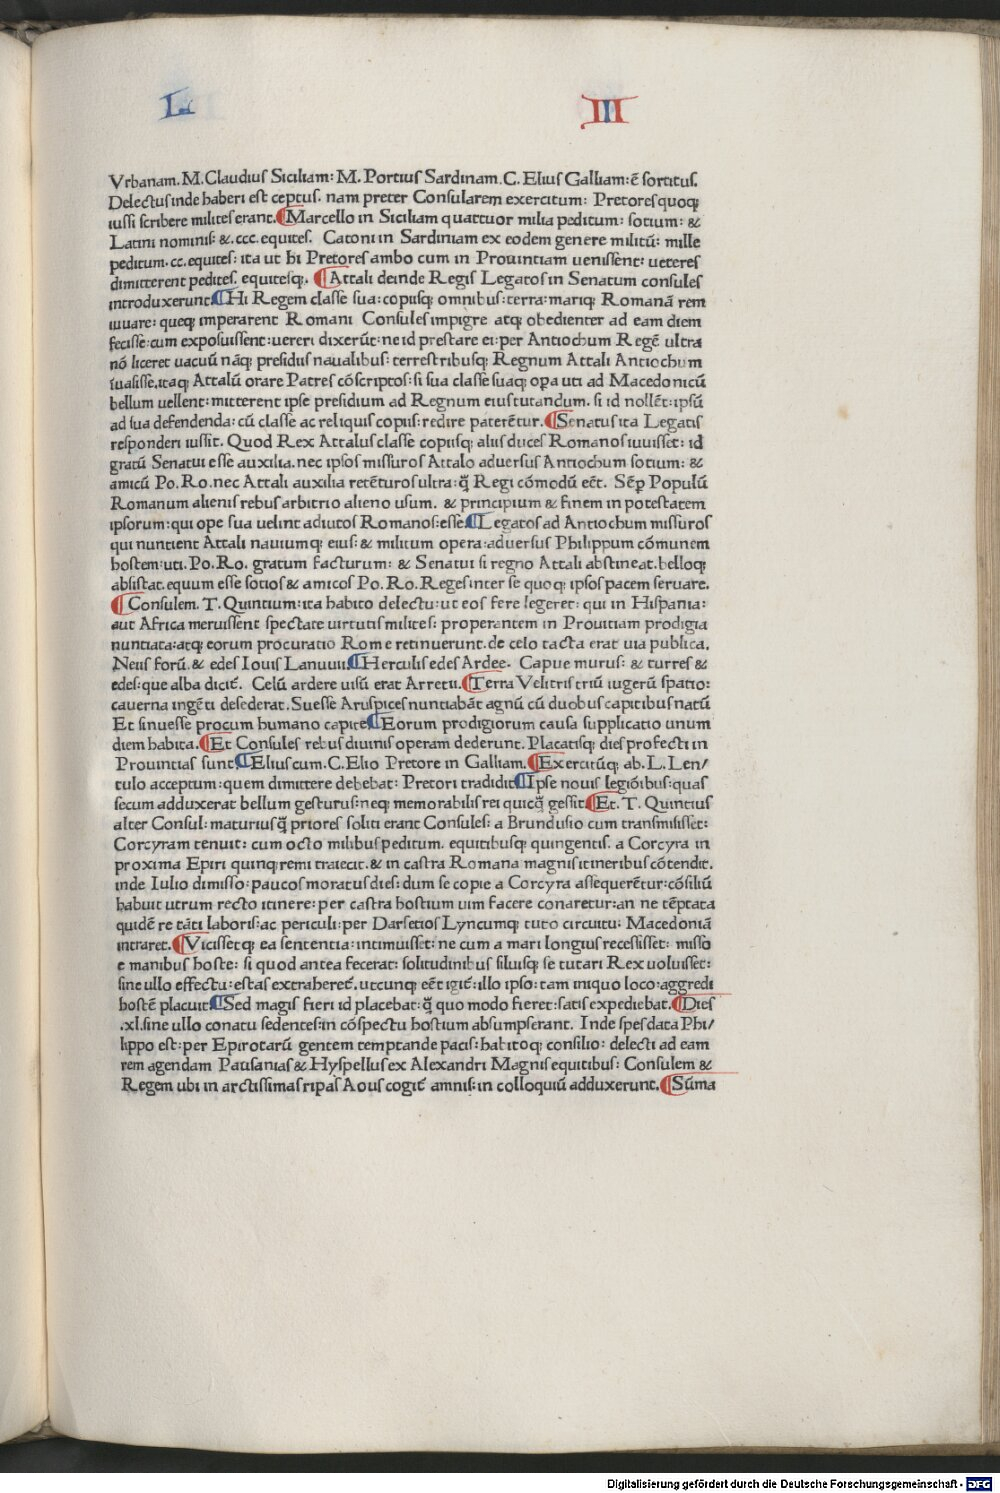 L. III
Vrbanam. M. Claudius Siciliam: M. Portius Sardinam. C. Elius Galliam: ē sortitus.
Delectus inde haberi est ceptus. nam preter Consularem exercitum: Pretores quoqꝫ
iussi scribere milites erant. ¶Marcello in Siciliam quattuor milia peditum: sotium: &
Latini nominis: &. ccc. equites. Catoni in Sardiniam ex eodem genere militū: mille
peditum. cc. equites: ita ut hi Pretores ambo cum in Prouintiam uenissent: ueteres
dimitterent pedites. equitesqꝫ. ¶Attali deinde Regis Legatos in Senatum consules
introduxerunt ¶Hi Regem classe sua: copiisqꝫ omnibus: terra: mariqꝫ Romanā rem
iuuare: queqꝫ imperarent Romani Consules impigre atqꝫ obedienter ad eam diem
fecisse: cum exposuissent: uereri dixerūt: ne id prestare ei: per Antiochum Regē ultra
nō liceret uacuū nāqꝫ presidiis naualibus: terrestribusqꝫ Regnum Attali Antiochum
iuasisse. itaqꝫ Attalū orare Patres cōscriptos: si sua classe suaqꝫ opa uti ad Macedonicū
bellum uellent: mitterent ipse presidium ad Regnum eius tutandum. si id nollēt: ipsū
ad sua defendenda: cū classe ac reliquis copiis: redire paterētur. ¶Senatus ita Legatis
responderi iussit. Quod Rex Attalus classe copiisqꝫ aliis duces Romanos iuuisset: id
gratū Senatui esse auxilia. nec ipsos missuros Attalo aduersus Antiochum sotium: &
amicū Po. Ro. nec Attali auxilia retēturos ultra: q̄ Regi cōmodū eēt. Sēp Populū
Romanum alienis rebus arbitrio alieno usum. & principium & finem in potestatem
ipsorum: qui ope sua uelint adiutos Romanos: esse ¶Legatos ad Antiochum missuros
qui nuntient Attali nauiumqꝫ eius: & militum opera: aduersus Philippum cōmunem
hostem: uti. Po. Ro. gratum facturum: & Senatui si regno Attali abstineat. belloqꝫ
absistat. equum esse sotios & amicos Po. Ro. Reges inter se quoqꝫ ipsos pacem seruare.
¶Consulem. T. Quintium: ita habito delectu: ut eos fere legeret: qui in Hispania:
aut Africa meruissent spectate uirtutis milites: properantem in Prouitiam prodigia
nuntiata: atqꝫ eorum procuratio Rome retinuerunt. de celo tacta erat uia publica.
Neiis forū. & edes Iouis Lanuuii ¶Herculis edes Ardee. Capue murus: & turres &
edes: que alba dicit̄. Celū ardere uisū erat Arretii. ¶Terra Velitris triū iugerū spatio:
cauerna ingēti desederat. Suesse Aruspices nuntiabāt agnū cū duobus capitibus natū
Et sinuesse procum humano capite ¶Eorum prodigiorum causa supplicatio unum
diem habita. ¶Et Consules rebus diuinis operam dederunt. Placatisqꝫ dies profecti in
Prouintias sunt ¶Elius cum. C. Elio Pretore in Galliam. ¶Exercitūqꝫ ab. L. Len/
tulo acceptum: quem dimittere debebat: Pretori tradidit ¶Ipse nouis legiōibus: quas
secum adduxerat bellum gesturus: neqꝫ memorabilis rei quicq̄ gessit ¶Et. T. Quintius
alter Consul: maturius q̄ priores soliti erant Consules: a Brundusio cum transmisisset:
Corcyram tenuit: cum octo milibus peditum. equitibusqꝫ quingentis. a Corcyra in
proxima Epiri quinqꝫ remi traiecit. & in castra Romana magnis itineribus cōtendit.
inde Iulio dimisso: paucos moratus dies: dum se copie a Corcyra assequerētur: cōsiliū
habuit utrum recto itinere: per castra hostium uim facere conaretur: an ne tēptata
quidē re tāti laboris: ac periculi: per Darsetios Lyncumqꝫ tuto circuitu: Macedoniā
intraret. ¶Vicissetqꝫ ea sententia: intimuisset: ne cum a mari longius recessisset: misso
e manibus hoste: si quod antea fecerat: solitudinibus siluisqꝫ se tutari Rex uoluisset:
sine ullo effectu: estas extraheret̄. utcunqꝫ eēt igit̄: illo ipso: tam iniquo loco: aggredi
hostē placuit ¶Sed magis fieri id placebat: q̄ quo modo fieret: satis expediebat. ¶Dies
.xl. sine ullo conatu sedentes: in cōspectu hostium absumpserant. Inde spes data Phi/
lippo est: per Epirotarū gentem temptande pacis: habitoqꝫ consilio: delecti ad eam
rem agendam Pausanias & Hyspellus ex Alexandri Magnis equitibus: Consulem &
Regem ubi in arctissimas ripas Aous cogit̄ amnis: in colloquiū adduxerunt. ¶Sūma
Digitalisierung gefördert durch die Deutsche Forschungsgemeinschaft - DFG